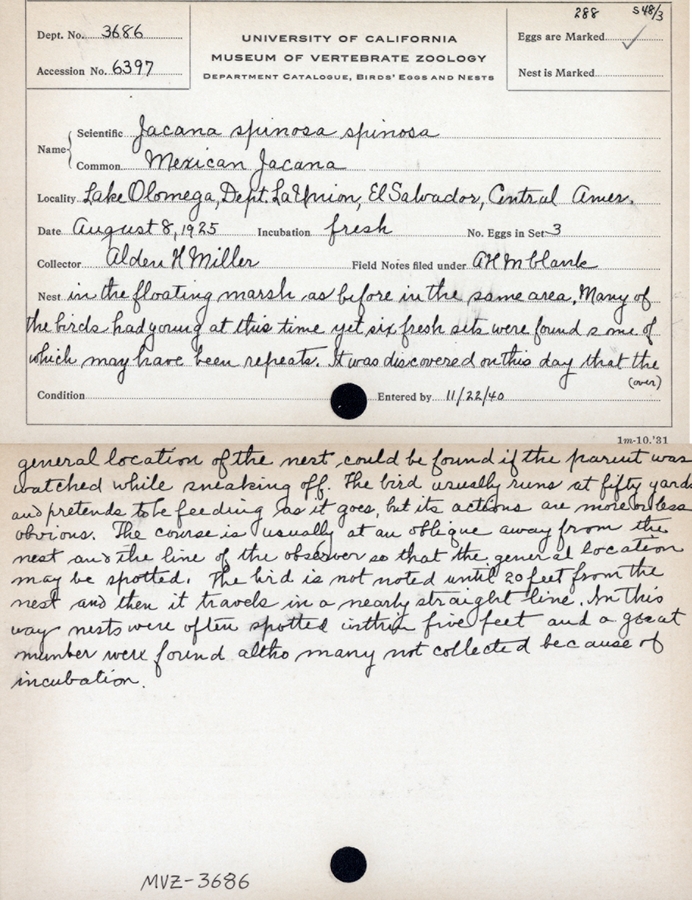 288 548/3
Dept. No. 3686
Accession No. 6397
UNIVERSITY OF CALIFORNIA
MUSEUM OF VERTEBRATE ZOOLOGY
DEPARTMENT CATALOGUE, BIRDS' EGGS AND NESTS
Eggs are Marked ✓
Nest is Marked
Name Scientific Jacana spinosa spinosa
Common Mexican Jacana
Locality Lake Olomega, Dept. La Union, El Salvador, Central Amer.
Date August 8, 1925 Incubation fresh No. Eggs in Set 3
Collector Alden H Miller Field Notes filed under AHM blank
Nest in the floating marsh as before in the same area. Many of
the birds had young at this time yet six fresh sets were found some of
which may have been repeats. It was discovered on this day that the
(over)
Condition Entered by 11/22/40
1m-10.'31
general location of the nest could be found if the parent was
watched while sneaking off. The bird usually runs at fifty yards
and pretends to be feeding as it goes, but its actions are more or less
obvious. The course is usually at an oblique away from the
nest and the line of the observer so that the general location
may be spotted. The bird is not noted until 20 feet from the
nest and then it travels in a nearly straight line. In this
way nests were often spotted within five feet and a great
number were found altho many not collected because of
incubation.
MVZ-3686